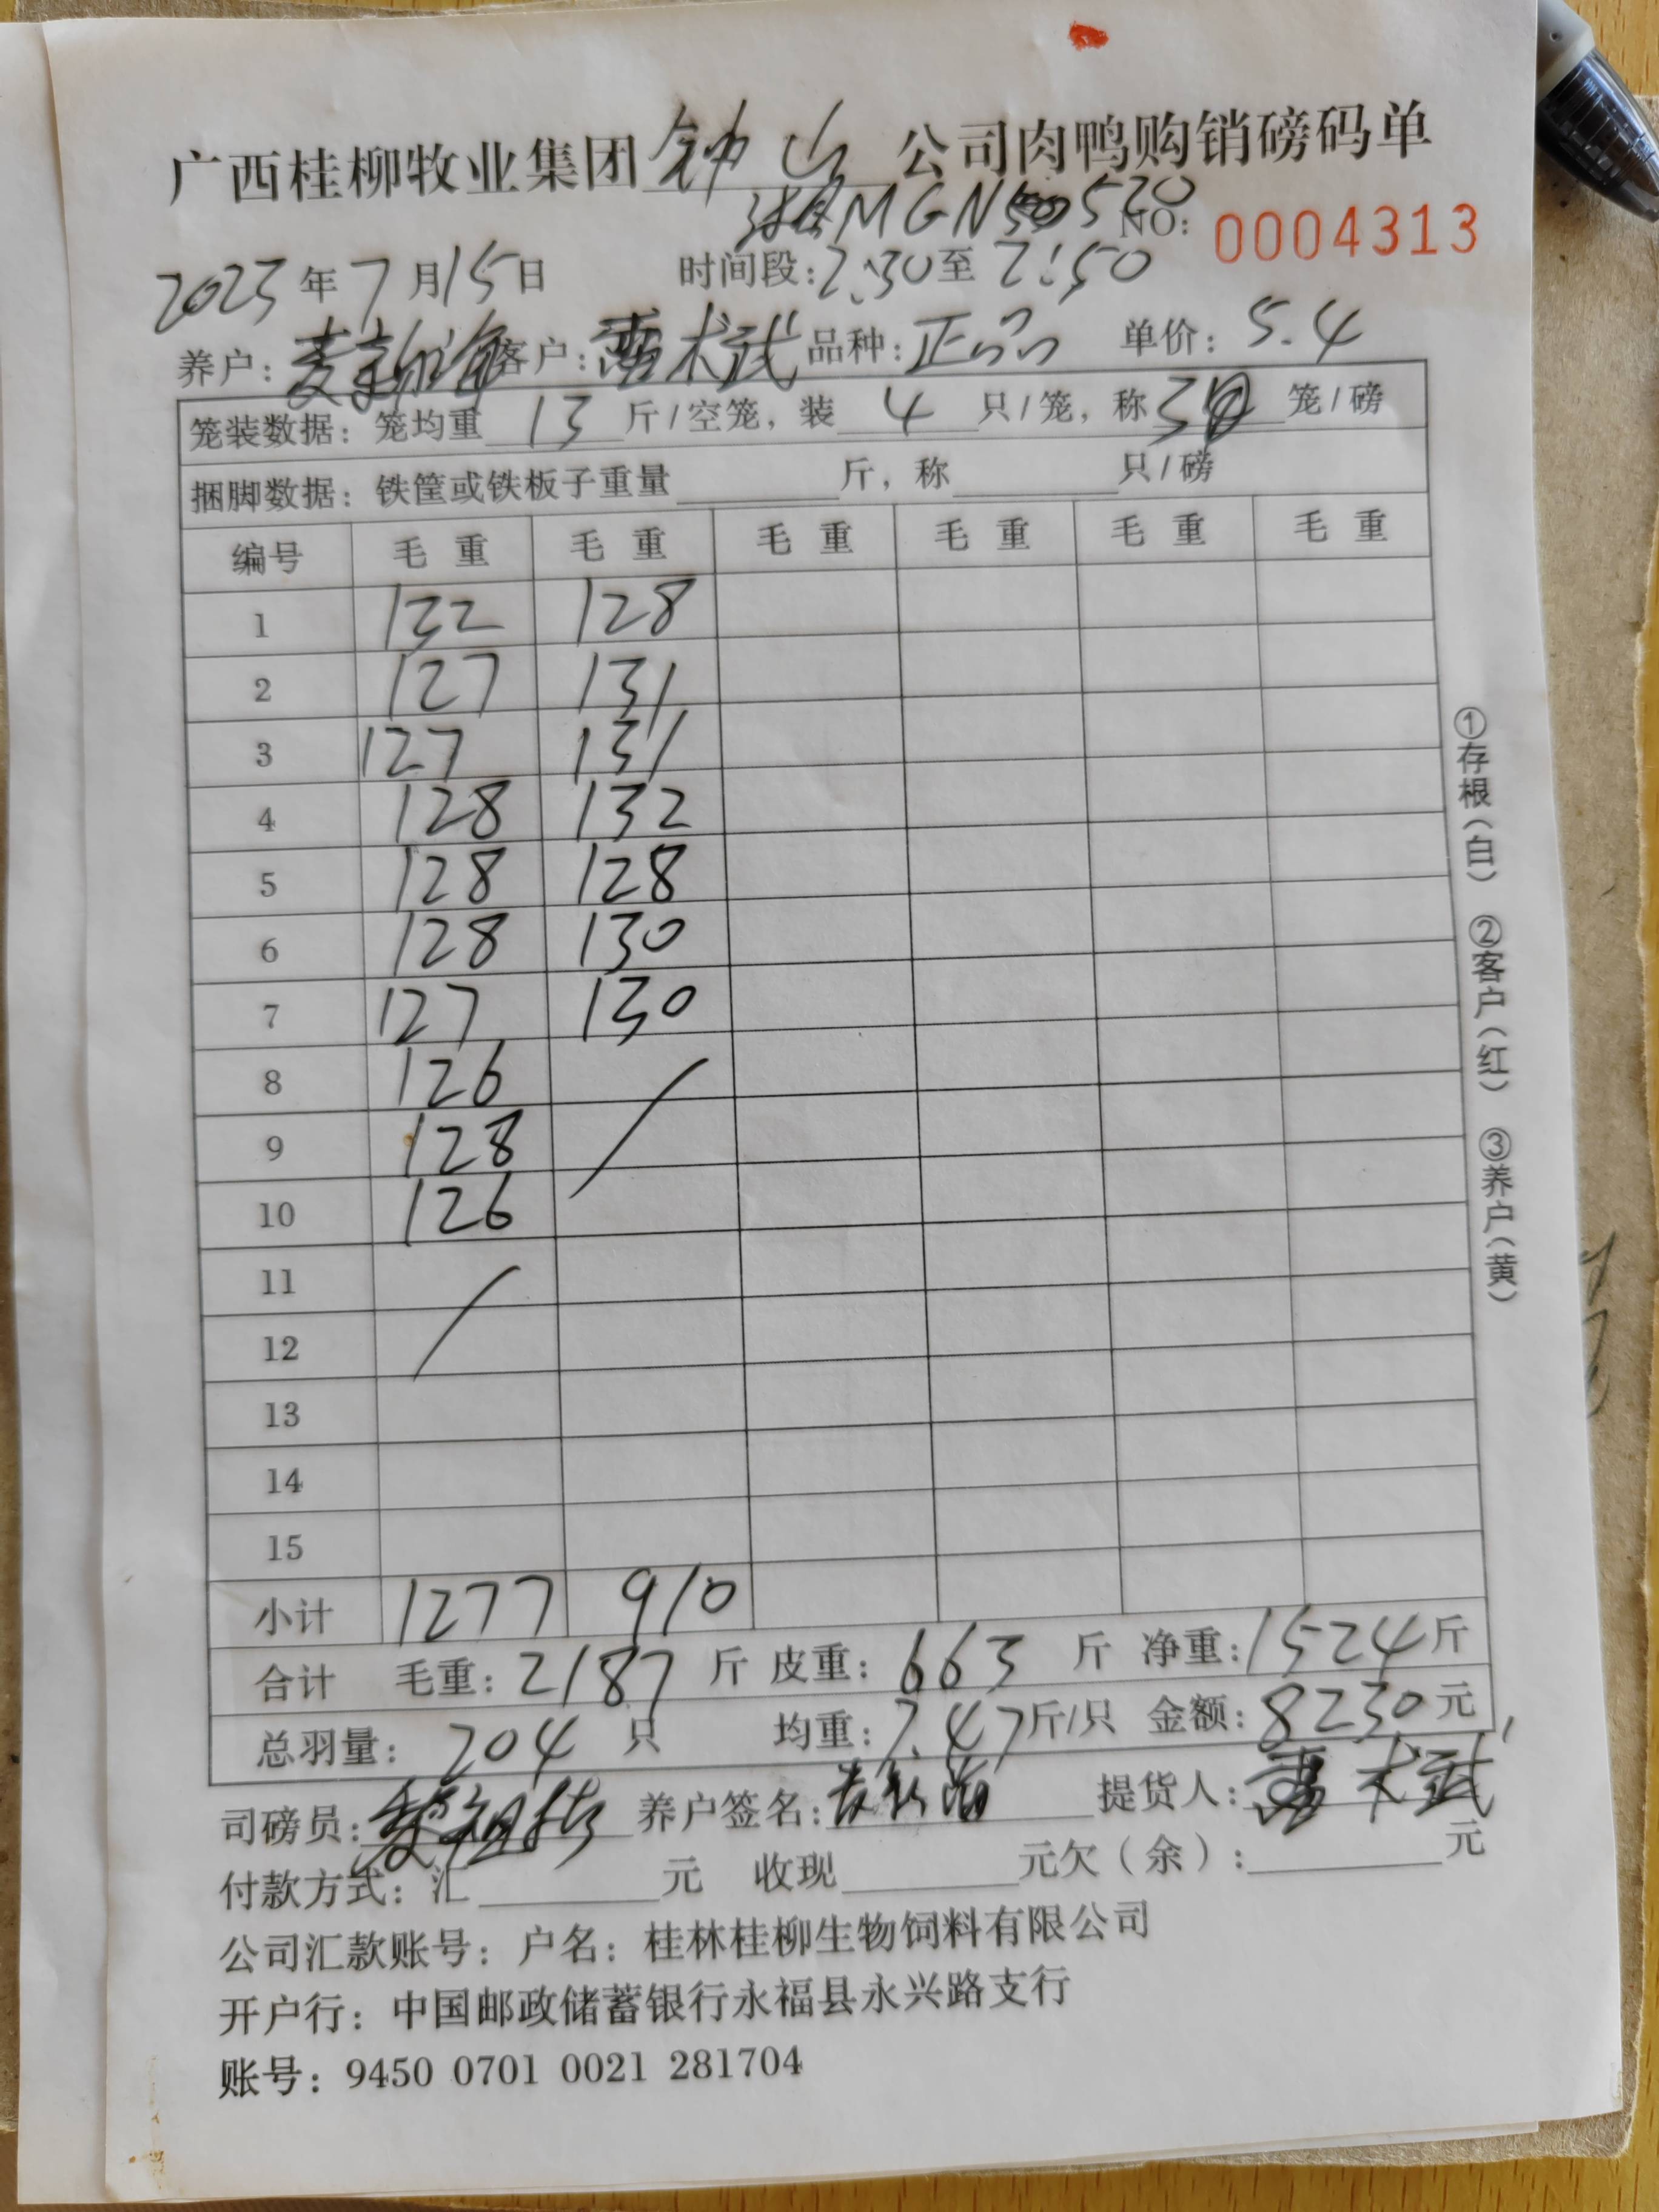 广西桂柳牧业集团钟山公司肉鸭购销磅码单
湘MGN520
NO: 0004313
2023年7月15日 时间段:2:30至2:50
养户: 客户: 术武 品种:正品 单价:5.4
笼装数据:笼均重13斤/空笼,装4只/笼,称3笼/磅
捆脚数据:铁筐或铁板子重量 斤,称 只/磅
编号 毛重 毛重 毛重 毛重 毛重 毛重
1 132 128
2 127 131
3 127 131
4 128 132
5 128 128
6 128 130
7 127 130
8 126
9 128
10 126
11
12
13
14
15
小计 1277 910
合计 毛重:2187斤 皮重:663斤 净重:1524斤
总羽量:204只 均重:7.47斤/只 金额:8230元
司磅员: 养户签名: 提货人: 术武
付款方式:汇 元 收现 元欠(余): 元
公司汇款账号:户名:桂林桂柳生物饲料有限公司
开户行:中国邮政储蓄银行永福县永兴路支行
账号:9450 0701 0021 281704
①存根(白) ②客户(红) ③养户(黄)